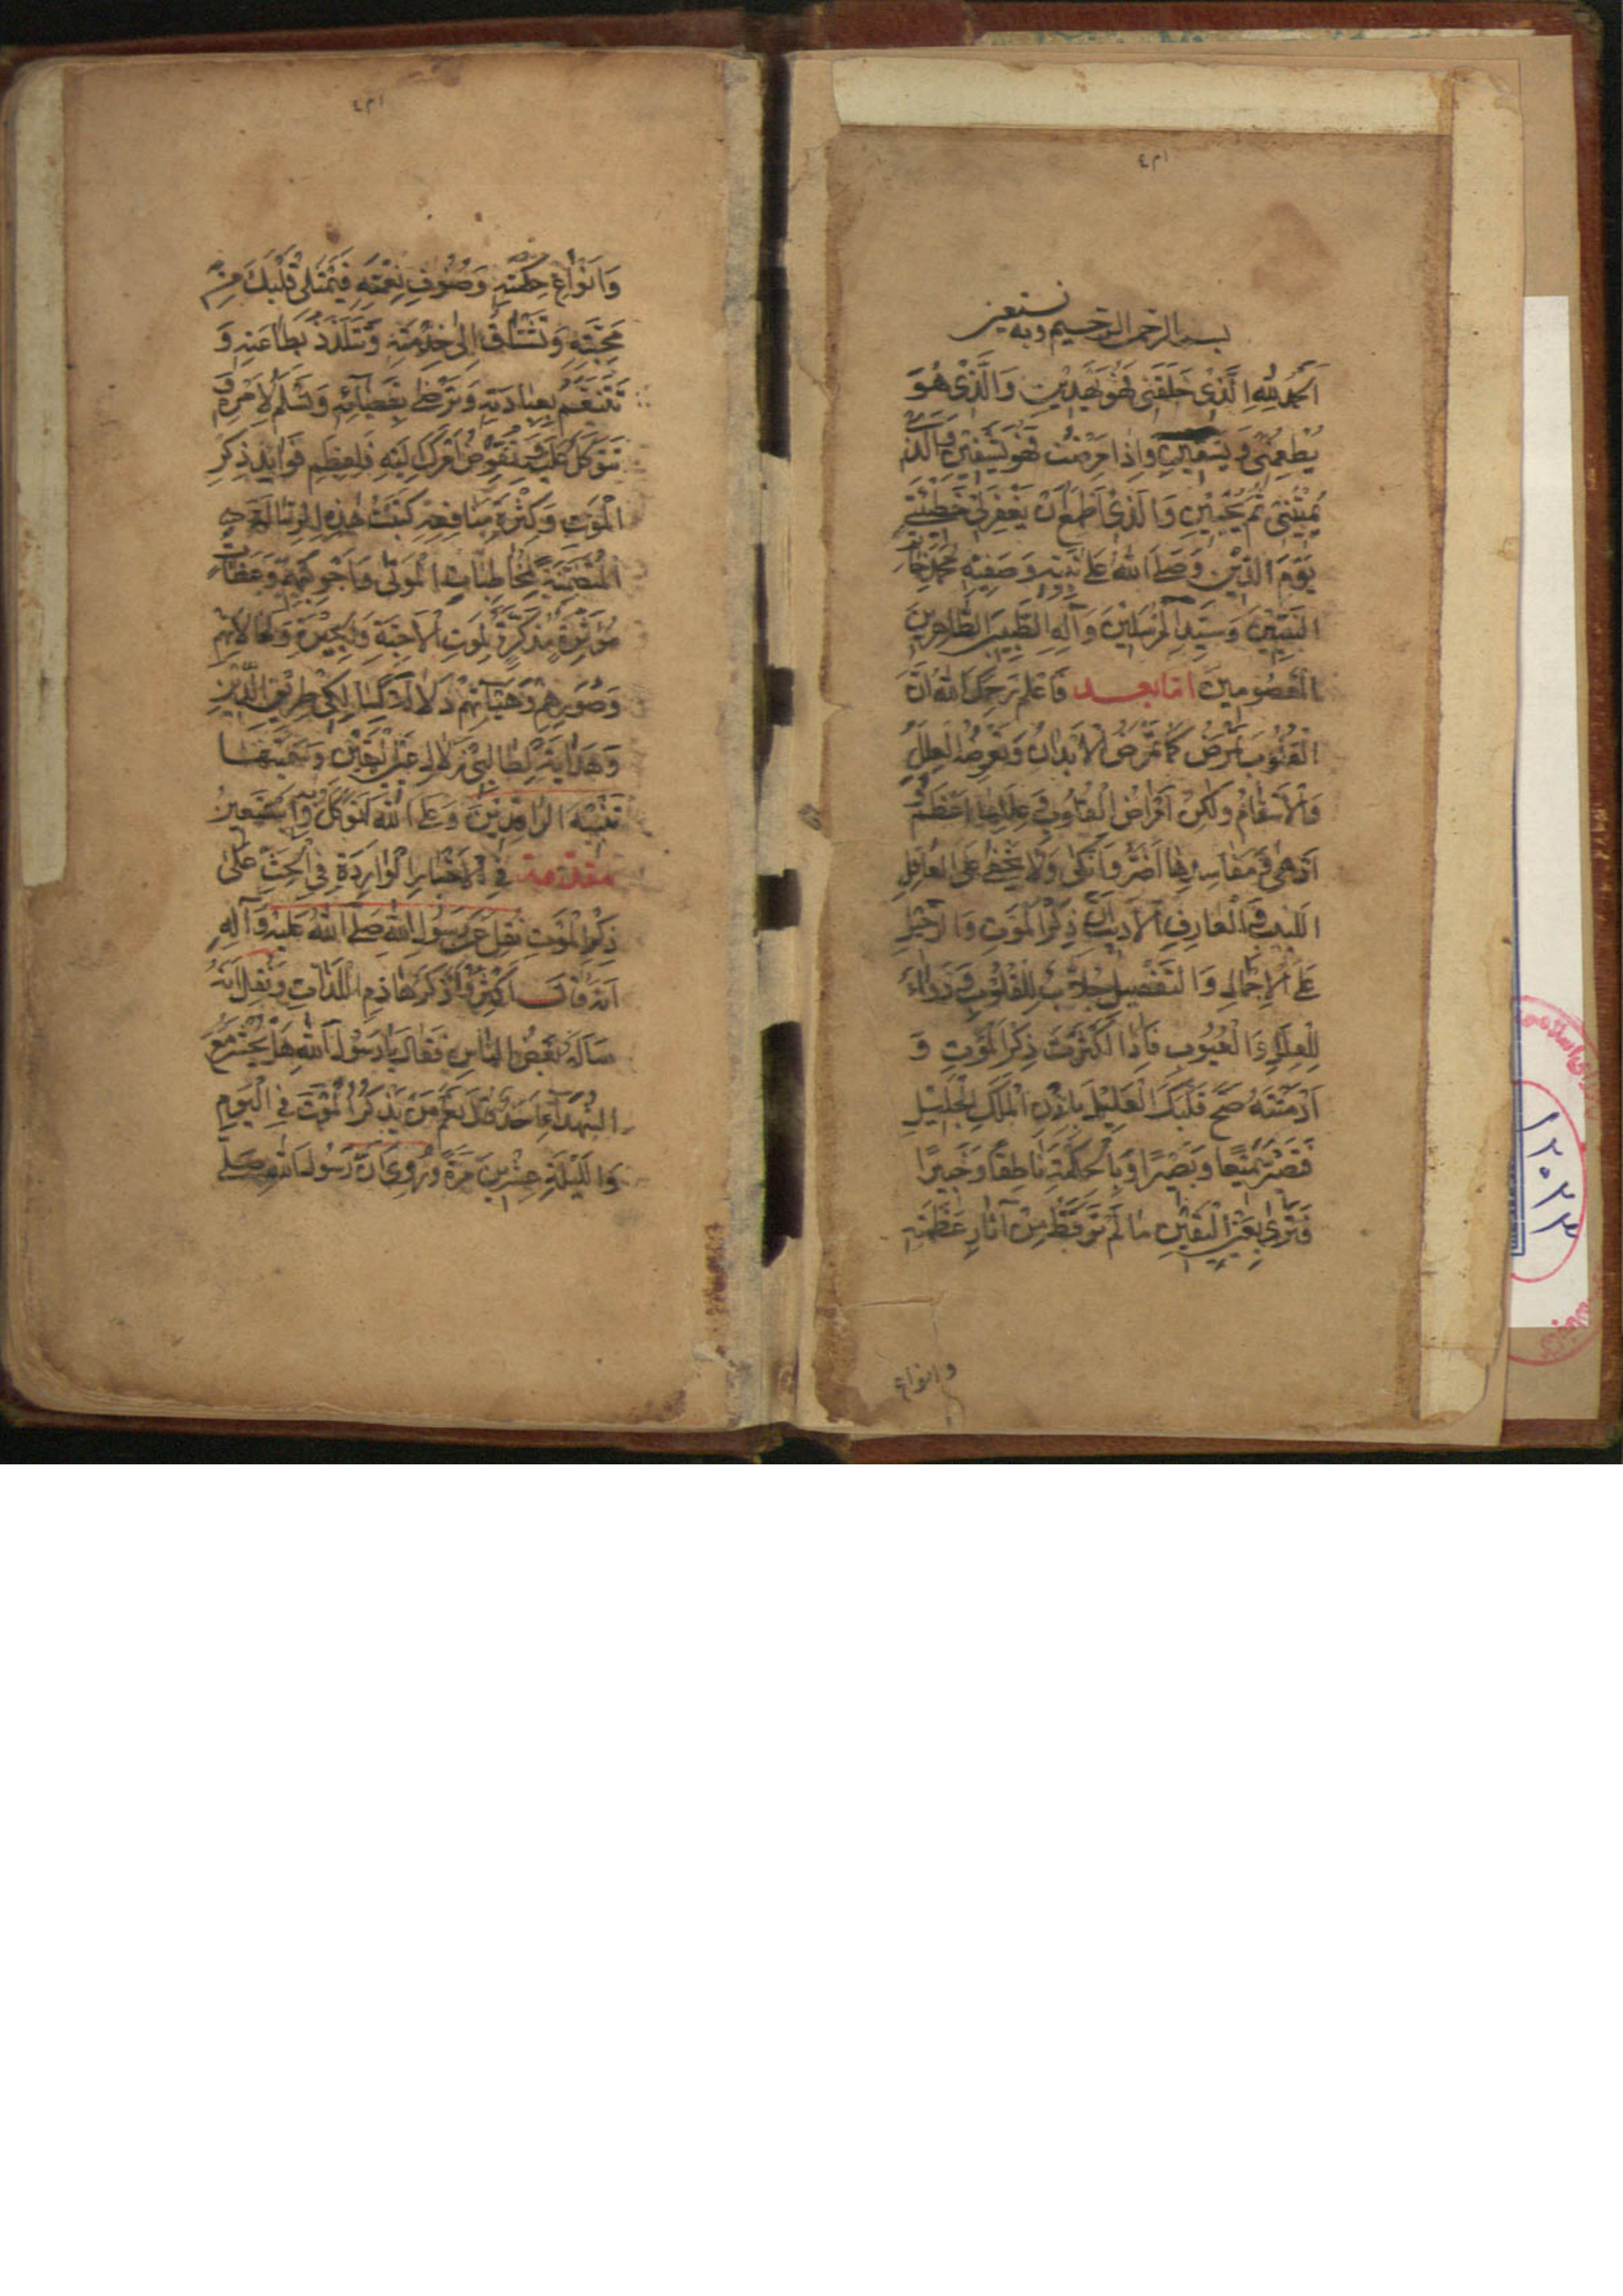 بسم الله الرحمن الرحيم وبه نستعين
اَلْحَمْدُ لِلّٰهِ الَّذِي خَلَقَنِي فَهُوَ يَهْدِينِ وَالَّذِي هُوَ
يُطْعِمُنِي وَيَسْقِينِ وَاِذَا مَرِضْتُ فَهُوَ يَشْفِينِ وَالَّذِي
يُمِيتُنِي ثُمَّ يُحْيِينِ وَالَّذِي اَطْمَعُ اَنْ يَغْفِرَ لِي خَطِيئَتِي
يَوْمَ الدِّينِ وَصَلَّى اللهُ عَلَى نَبِيِّهِ وَصَفِيِّهِ مُحَمَّدٍ خَاتَمِ
النَّبِيِّينَ وَسَيِّدِ الْمُرْسَلِينَ وَآلِهِ الطَّيِّبِينَ الطَّاهِرِينَ
الْمَعْصُومِينَ اما بعد فَاعْلَمْ يَرْحَمُكَ اللهُ اَنَّ
الْقُلُوبَ تَمْرَضُ كَمَا تَمْرَضُ الْاَبْدَانُ وَتَعْرِضُهَا الْعِلَلُ
وَالْاَسْقَامُ وَلٰكِنْ اَمْرَاضُ الْقُلُوبِ فِي عِلَلِهَا اَعْظَمُ وَ
اَدْهَى وَفِي مَفَاسِدِهَا اَضَرُّ وَاَنْكَى وَلَا يَخْفَى عَلَى الْعَاقِلِ
اللَّبِيبِ وَالْعَارِفِ الْاَدِيبِ اَنَّ ذِكْرَ الْمَوْتِ وَالرَّحِيلِ
عَلَى الْاِجْمَالِ وَالتَّفْصِيلِ جَلَّابٌ لِلْقُلُوبِ وَدَوَاءٌ
لِلْعِلَلِ وَالْعُيُوبِ فَاِذَا اَكْثَرْتَ ذِكْرَ الْمَوْتِ وَ
اَدْمَنْتَهُ صَحَّ قَلْبُكَ الْعَلِيلُ بِاِذْنِ الْمَلِكِ الْجَلِيلِ
فَصِرْتَ سَمِيعًا وَبَصِيرًا وَبِالْحِكْمَةِ نَاطِقًا وَخَبِيرًا
فَتَرَى بِعَيْنِ الْيَقِينِ مَا لَمْ تَرَ قَطُّ مِنْ آثَارِ عَظَمَتِهِ
وانواع
وَاَنْوَاعِ حِكْمَتِهِ وَصُنُوفِ نِعْمَتِهِ فَيَمْتَلِي قَلْبُكَ مِنْ
مَحَبَّتِهِ وَتَشْتَاقُ اِلَى خِدْمَتِهِ وَتَتَلَذَّذُ بِطَاعَتِهِ وَ
تَتَنَعَّمُ بِعِبَادَتِهِ وَتَرْضَى بِقَضَائِهِ وَتُسَلِّمُ لِاَمْرِهِ وَ
تَتَوَكَّلُ عَلَيْهِ وَتُفَوِّضُ اَمْرَكَ اِلَيْهِ فَلِعِظَمِ فَوَائِدِ ذِكْرِ
الْمَوْتِ وَكَثْرَةِ مَنَافِعِهِ كَتَبْتُ هٰذِهِ الرِّسَالَةَ
الْمُتَضَمِّنَةَ لِمُخَاطِبَاتِ الْمَوْتَى وَاَجْوِبَتِهِمْ وَعِظَاتٍ
مُؤَثِّرَةٍ مُذَكِّرَةٍ لِمَوْتِ الْاَحِبَّةِ وَالْجِيرَةِ وَلِحَالَاتِهِمْ
وَصُوَرِهِمْ وَهَيْئَاتِهِمْ دَلَالَةً لِسَالِكِي طَرِيقِ الدِّينِ
وَهِدَايَةً لِطَالِبِي زُلَالِ عَيْنِ الْيَقِينِ وَسَمَّيْتُهَا
تَنْبِيهَ الرَّاقِدِينَ وَعَلَى اللهِ اَتَوَكَّلُ وَبِهِ اَسْتَعِينُ
مقدمة فِي الْاَخْبَارِ الْوَارِدَةِ فِي الْحَثِّ عَلَى
ذِكْرِ الْمَوْتِ نُقِلَ عَنْ رَسُولِ اللهِ صَلَّى اللهُ عَلَيْهِ وَآلِهِ
اَنَّهُ قَالَ اَكْثِرُوا ذِكْرَ هَاذِمِ اللَّذَّاتِ وَنُقِلَ اَنَّهُ
سَاَلَهُ بَعْضُ النَّاسِ فَقَالَ يَا رَسُولَ اللهِ هَلْ يُحْشَرُ مَعَ
الشُّهَدَاءِ اَحَدٌ قَالَ نَعَمْ مَنْ يَذْكُرُ الْمَوْتَ فِي الْيَوْمِ
وَاللَّيْلَةِ عِشْرِينَ مَرَّةً وَرُوِيَ اَنَّ رَسُولَ اللهِ صَلَّى
١٢٥٢٣